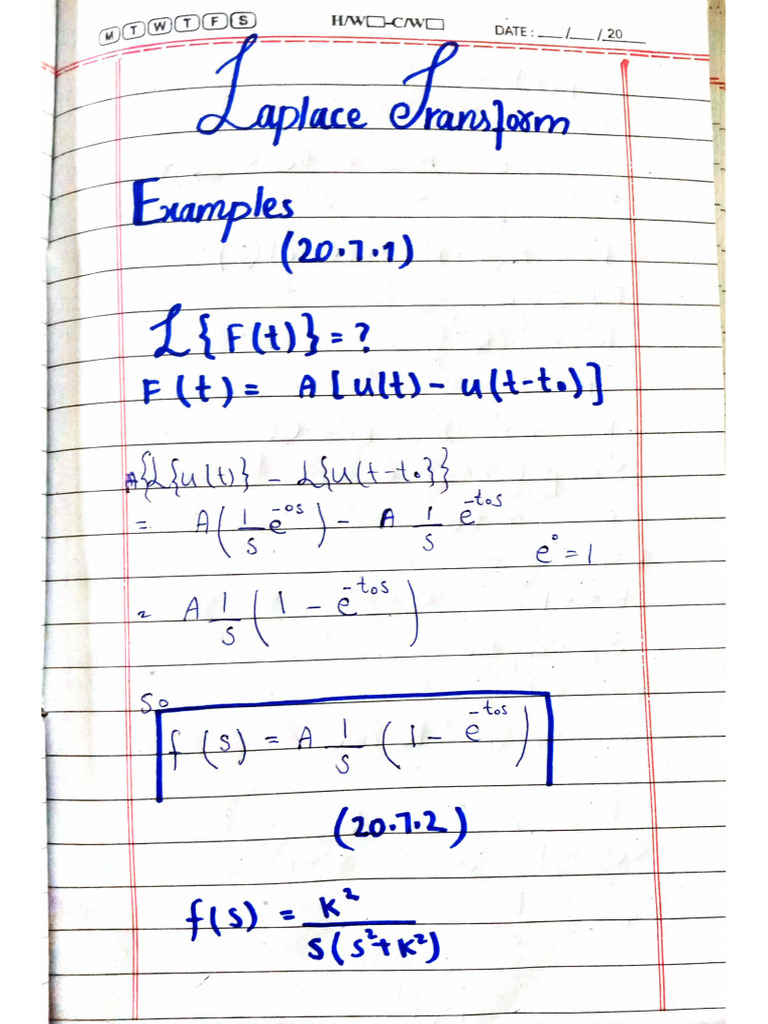 M T W T F S H/W□-C/W□ DATE: ___/___/ 20
Laplace Transform
Examples
(20.7.1)
ℒ{F(t)} = ?
F(t) = A[u(t) - u(t-t₀)]
A{ℒ{u(t)} - ℒ{u(t-t₀}}
= A(1/s e^-0s) - A 1/s e^-t₀s
e⁰ = 1
= A 1/s (1 - e^-t₀s)
So
f(s) = A 1/s (1 - e^-t₀s)
(20.7.2)
f(s) = K²/S(s²+K²)